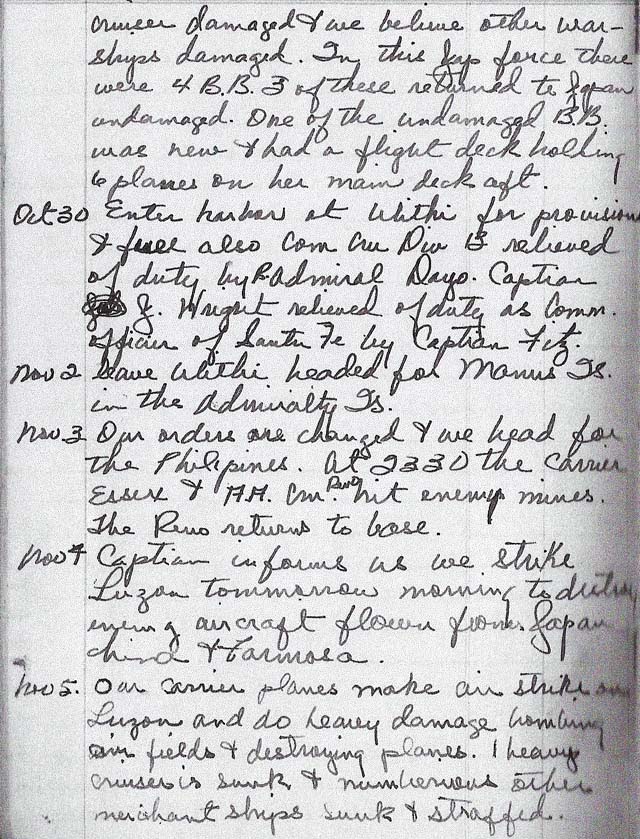 cruiser damaged & we believe other war-
ships damaged. In this Jap force there
were 4 B.B. 3 of these returned to Japan
undamaged. One of the undamaged B.B.
was new & had a flight deck holding
6 planes on her main deck aft.
Oct 30 Enter harbor at Ulithi for provision
& fuel also Com Cru Div 13 relieved
of duty by R. Admiral Dayo. Captian
J. Wright relieved of duty as Comm.
officer of Santa Fe by Captian Fitz.
Nov 2 leave Ulithi headed for Manus Is.
in the Admiralty Is.
Nov. 3 Our orders are changed & we head for
the Philipines. At 2330 the carrier
Essex & A.A. Cru. Reno hit enemy mines.
The Reno returns to base.
Nov 4 Captian informs us we strike
Luzon tommorrow morning to
enemy aircraft flown from Japan
china & Farmosa.
Nov 5. Our carrier planes make air strike on
Luzon and do heavy damage bombing
air fields & destroying planes. 1 heavy
cruiser is sunk & numberous other
merchant ships sunk & straffed.